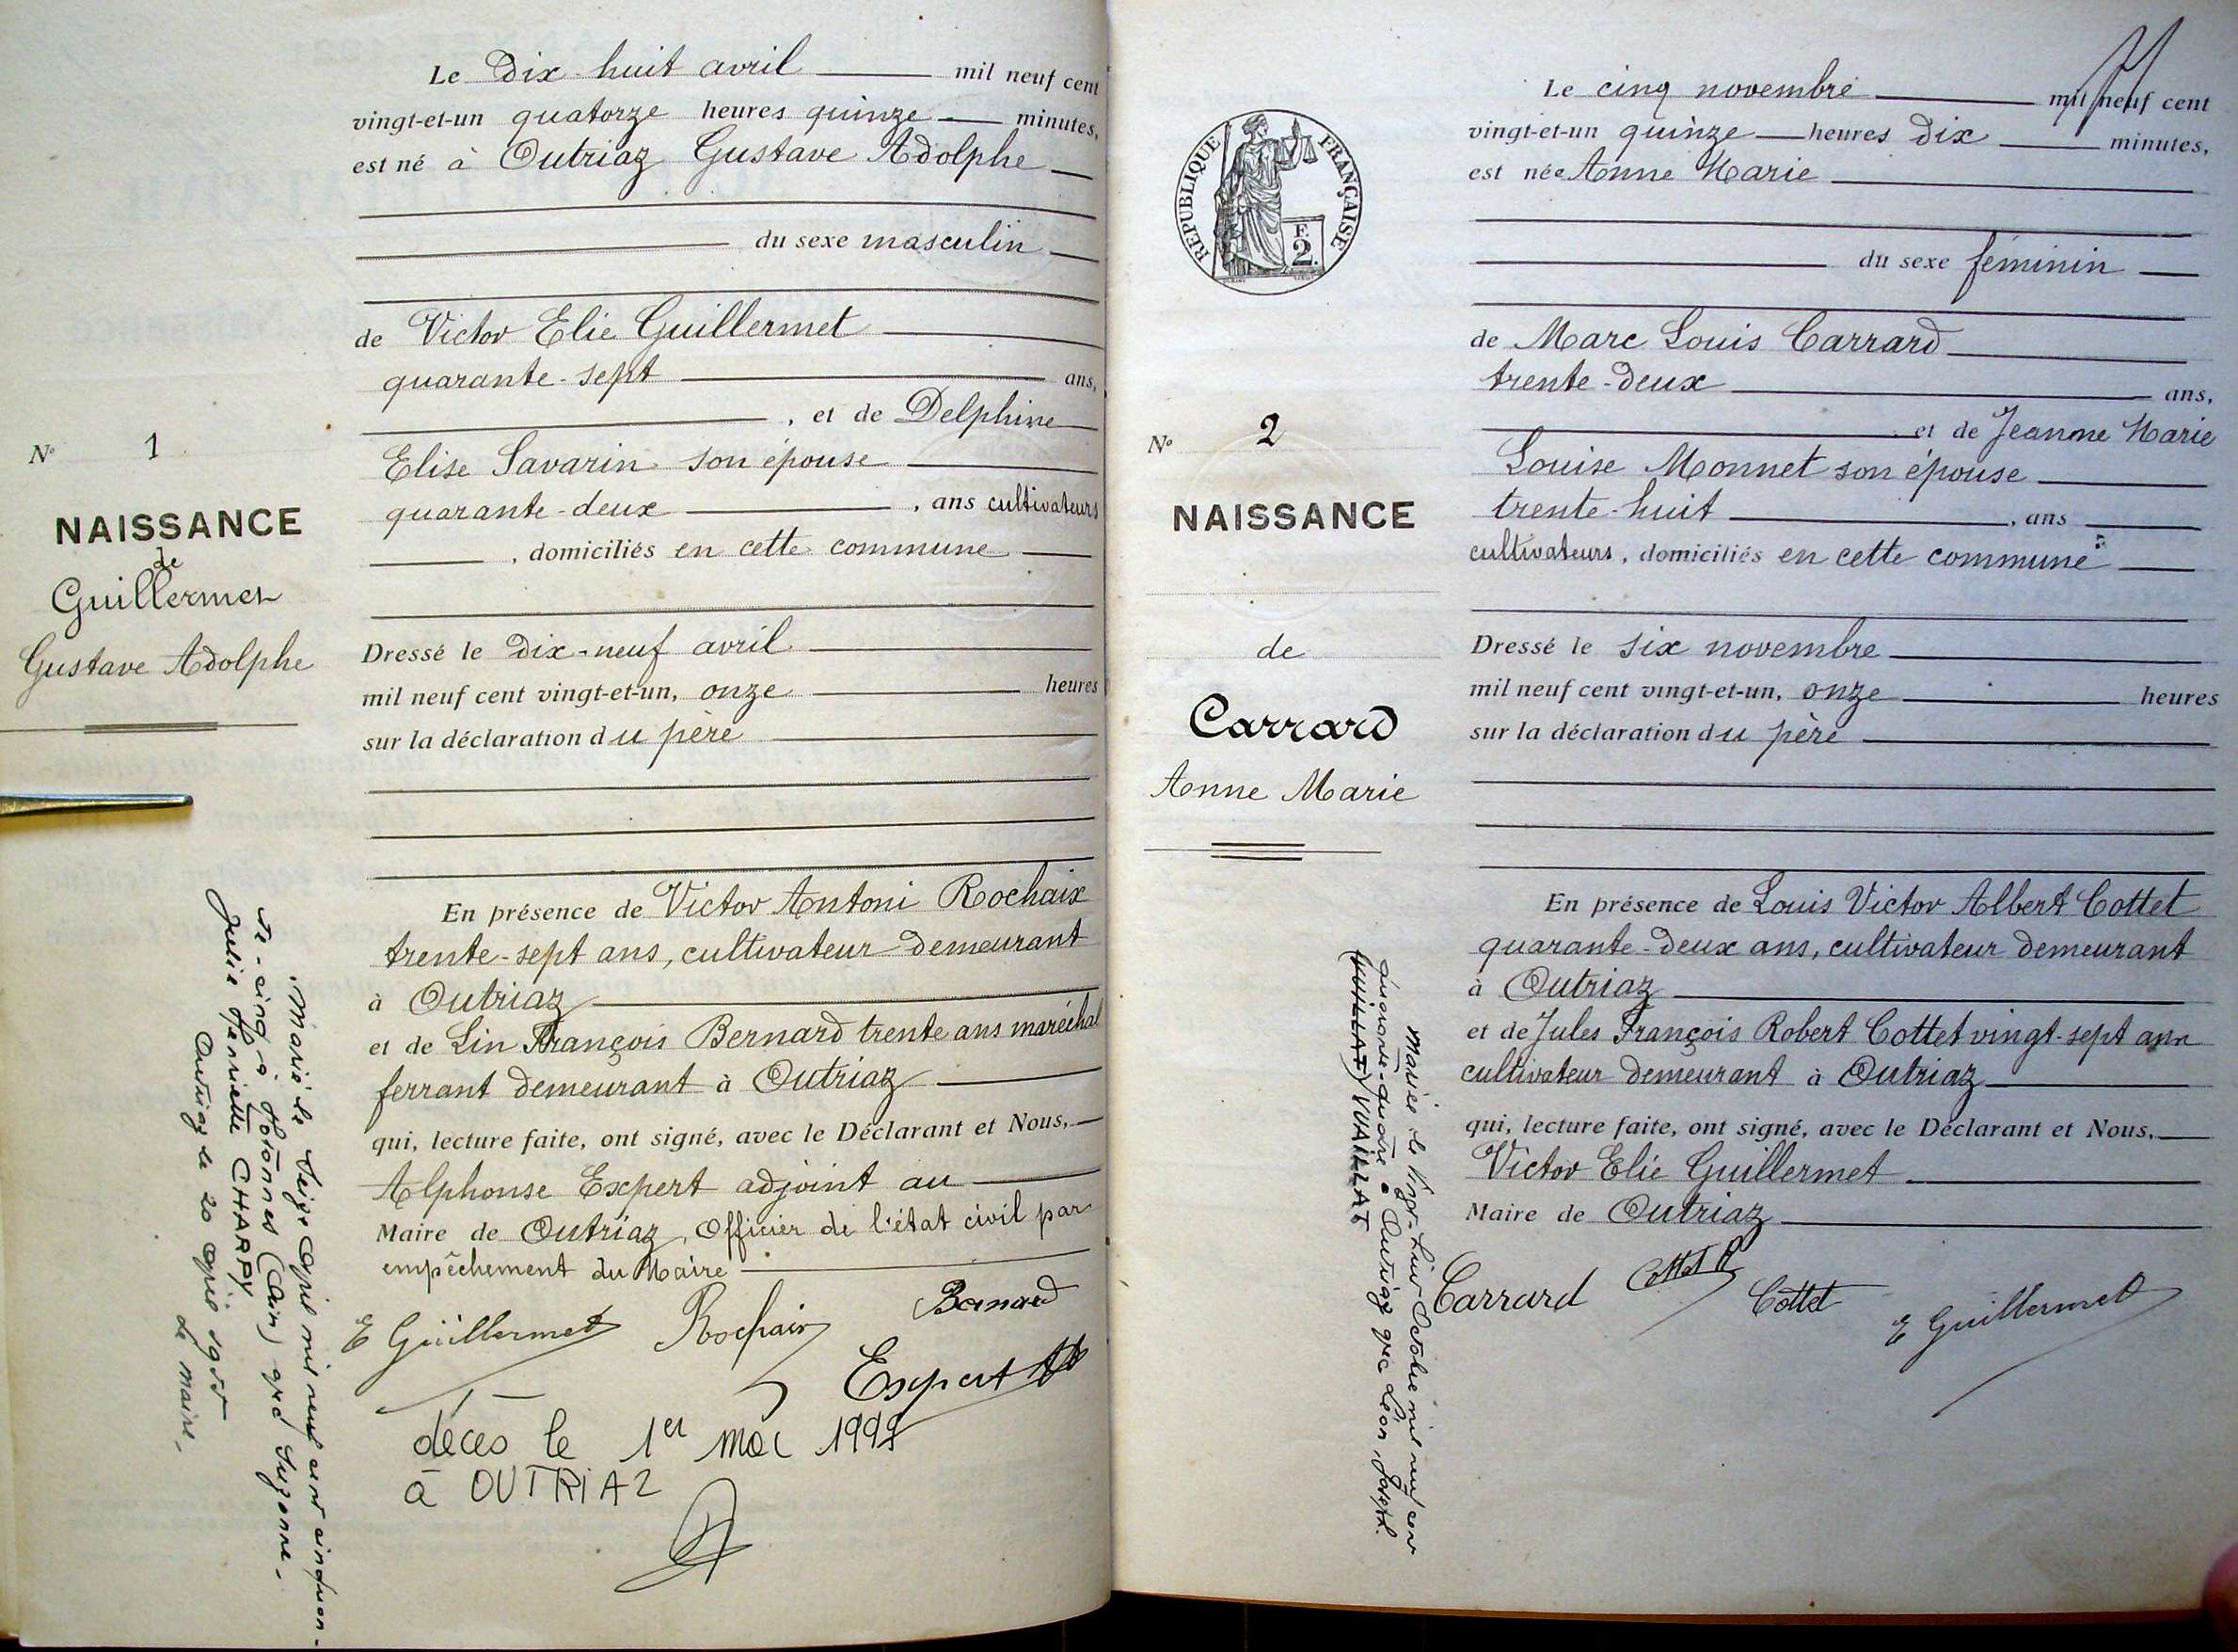 Le dix-huit avril mil neuf cent
vingt-et-un quatorze heures quinze minutes,
est né à Outriaz Gustave Adolphe
du sexe masculin
de Victor Elie Guillermet
quarante-sept ans,
, et de Delphine
Elise Savarin son épouse
quarante-deux , ans cultivateurs
, domiciliés en cette commune
Dressé le dix-neuf avril
mil neuf cent vingt-et-un, onze heures
sur la déclaration du père
En présence de Victor Antoni Rochaix
trente-sept ans, cultivateur demeurant
à Outriaz
et de Lin François Bernard trente ans maréchal
ferrant demeurant à Outriaz
qui, lecture faite, ont signé, avec le Déclarant et Nous,
Alphonse Expert adjoint au
Maire de Outriaz, Officier de l'état civil par
empêchement du Maire
E Guillermet Rochaix Bernard
Expert
décès le 1er mai 1999
à OUTRIAZ
N° 1
NAISSANCE
de
Guillermet
Gustave Adolphe
Marié le Seize Avril mil neuf cent cinquan-
te-cinq à Hotonnes (Ain) avec Suzanne-
Julie Henriette CHARPY
Outriaz le 20 avril 1955
Le maire.
REPUBLIQUE FRANÇAISE
F.
2.
N° 2
NAISSANCE
de
Carrard
Anne Marie
Mariée le Vingt-huit Octobre mil neuf cent
quarante-quatre à Outriaz avec Léon Joseph
(VUILLAT) VUAILLAT
Le cinq novembre mil neuf cent
vingt-et-un quinze heures dix minutes,
est née Anne Marie
du sexe féminin
de Marc Louis Carrard
trente-deux ans,
et de Jeanne Marie
Louise Monnet son épouse
trente-huit , ans
cultivateurs, domiciliés en cette commune
Dressé le six novembre
mil neuf cent vingt-et-un, onze heures
sur la déclaration du père
En présence de Louis Victor Albert Cottet
quarante-deux ans, cultivateur demeurant
à Outriaz
et de Jules François Robert Cottet vingt-sept ans
cultivateur demeurant à Outriaz
qui, lecture faite, ont signé, avec le Déclarant et Nous,
Victor Elie Guillermet
Maire de Outriaz
Carrard Cottet R Cottet E Guillermet